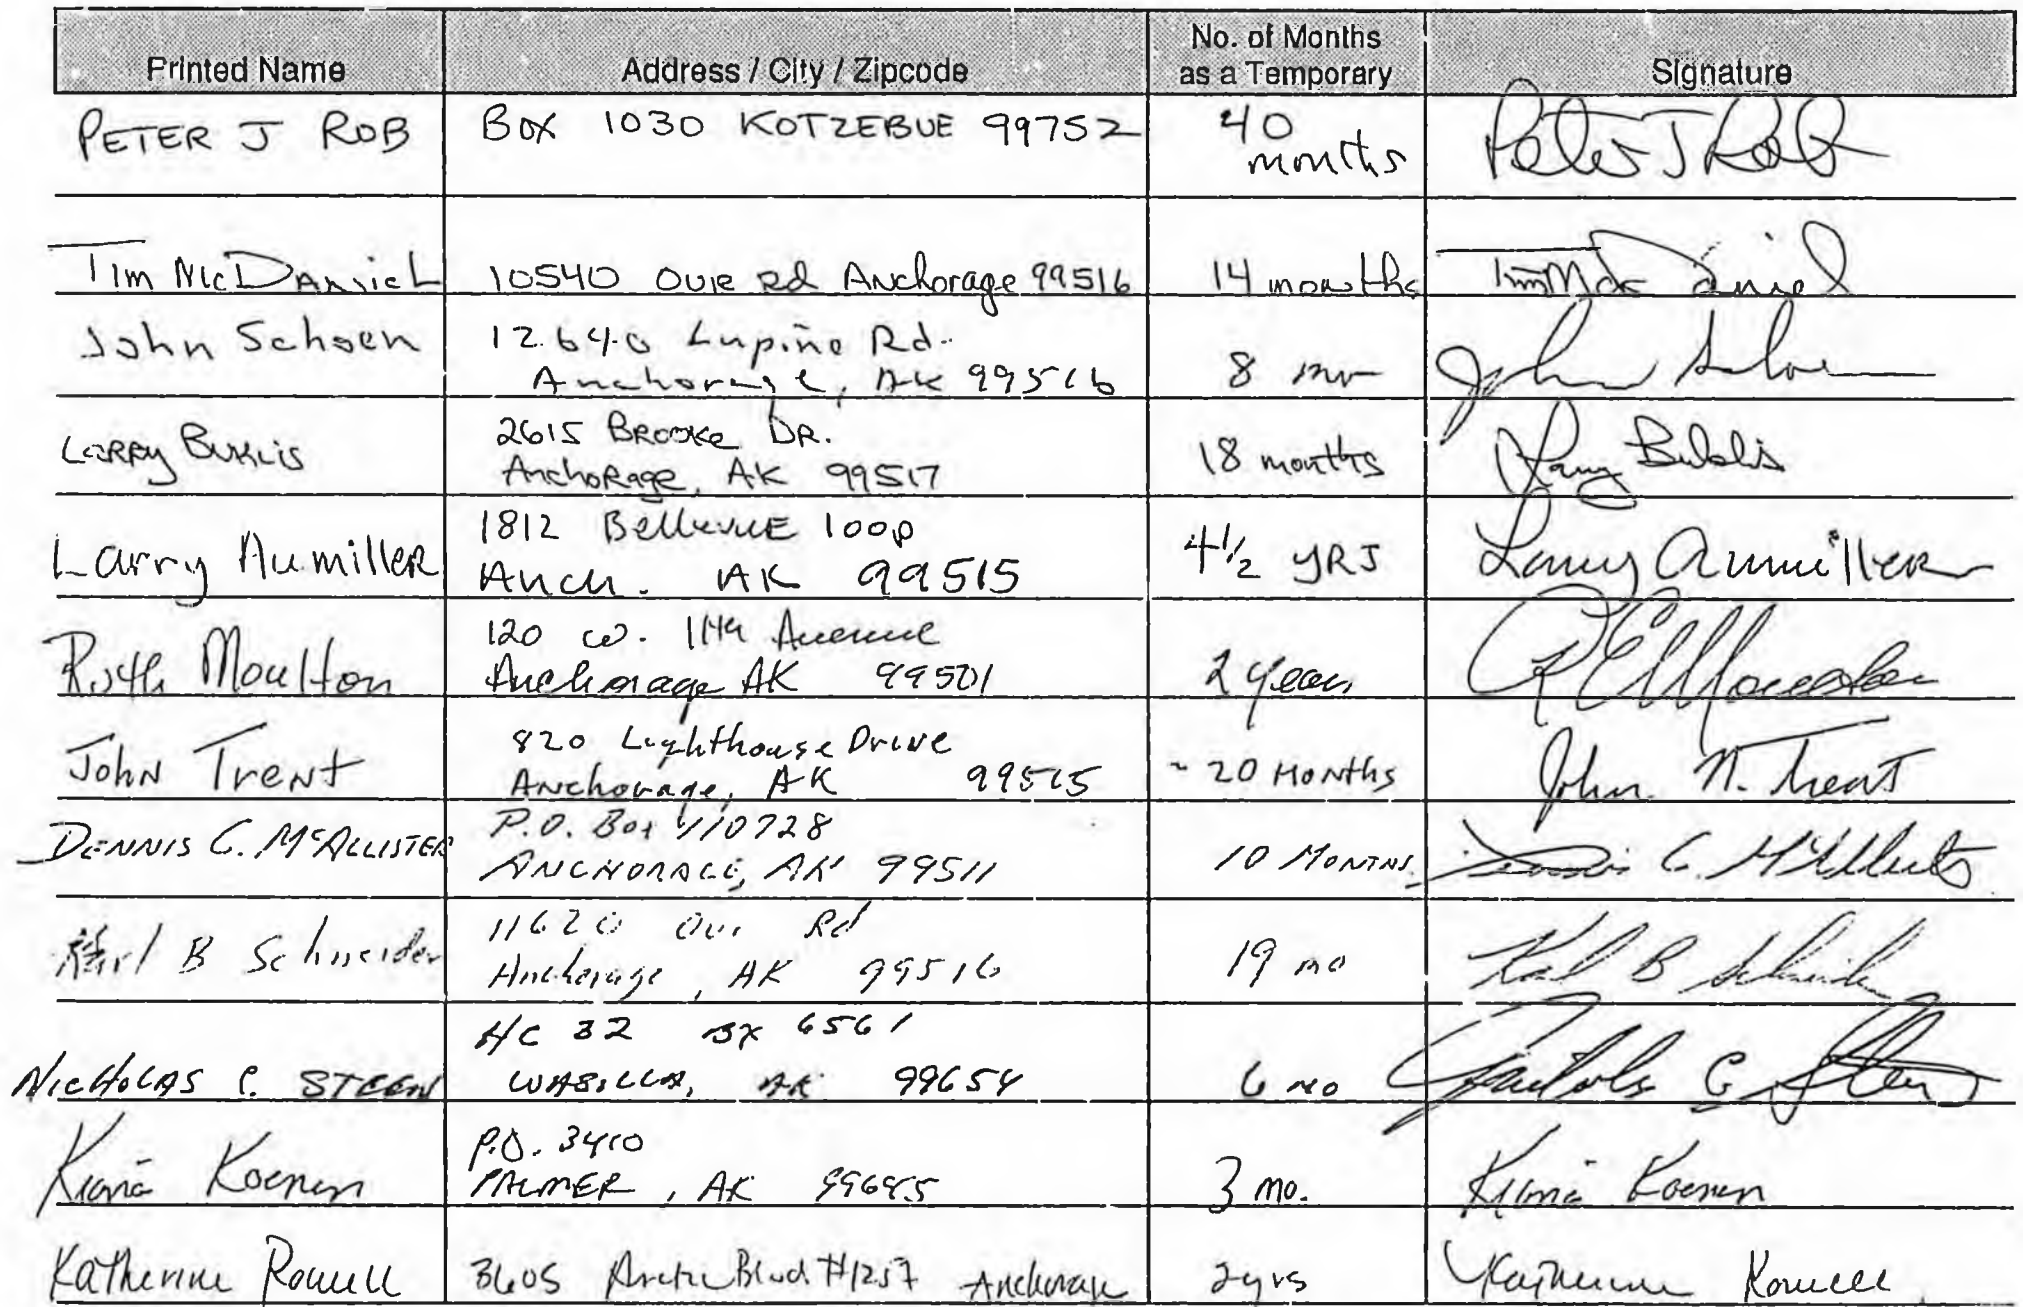 Printed Name Address / City / Zipcode No. of Months as a Temporary Signature
PETER J ROB BOX 1030 KOTZEBUE 99752 40 months Peter J Rob
Tim McDaniel 10540 Our Rd Anchorage 99516 14 months Tim McDaniel
John Schoen 12640 Lupine Rd. Anchorage, AK 99516 8 mo John Schoen
Larry Buklis 2615 Brooke DR. Anchorage, AK 99517 18 months Larry Buklis
Larry Aumiller 1812 Bellevue loop Anch. AK 99515 4 1/2 YRS Larry Aumiller
Ruth Moulton 120 W. 11th Avenue Anchorage AK 99501 2 years R E Moulton
John Trent 820 Lighthouse Drive Anchorage, AK 99515 ~ 20 Months John N. Trent
DENNIS C. McALLISTER P.O. Box 110728 ANCHORAGE, AK 99511 10 MONTHS Dennis C. McAllister
Karl B Schneider 11620 Our Rd Anchorage, AK 99516 19 mo Karl B Schneider
NICHOLAS C. STEEN HC 32 BX 6561 WASILLA, AK 99654 6 mo Nicholas C Steen
Kiana Koenen P.O. 3410 PALMER, AK 99645 3 mo. Kiana Koenen
Katherine Rowell 3605 Arctic Blvd #1257 Anchorage 2 yrs Katherine Rowell